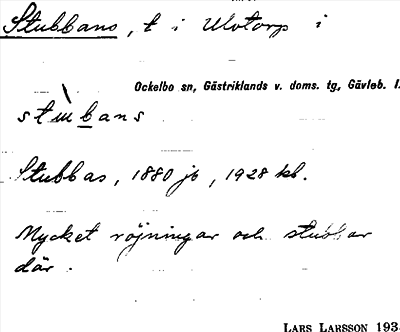 Stubbans, t i Ulvtorp i
Ockelbo sn, Gästriklands v. doms. tg, Gävleb. l.
Stubbas, 1880 jb, 1928 kb.
Mycket röjningar och stubbar
där.
LARS LARSSON 193